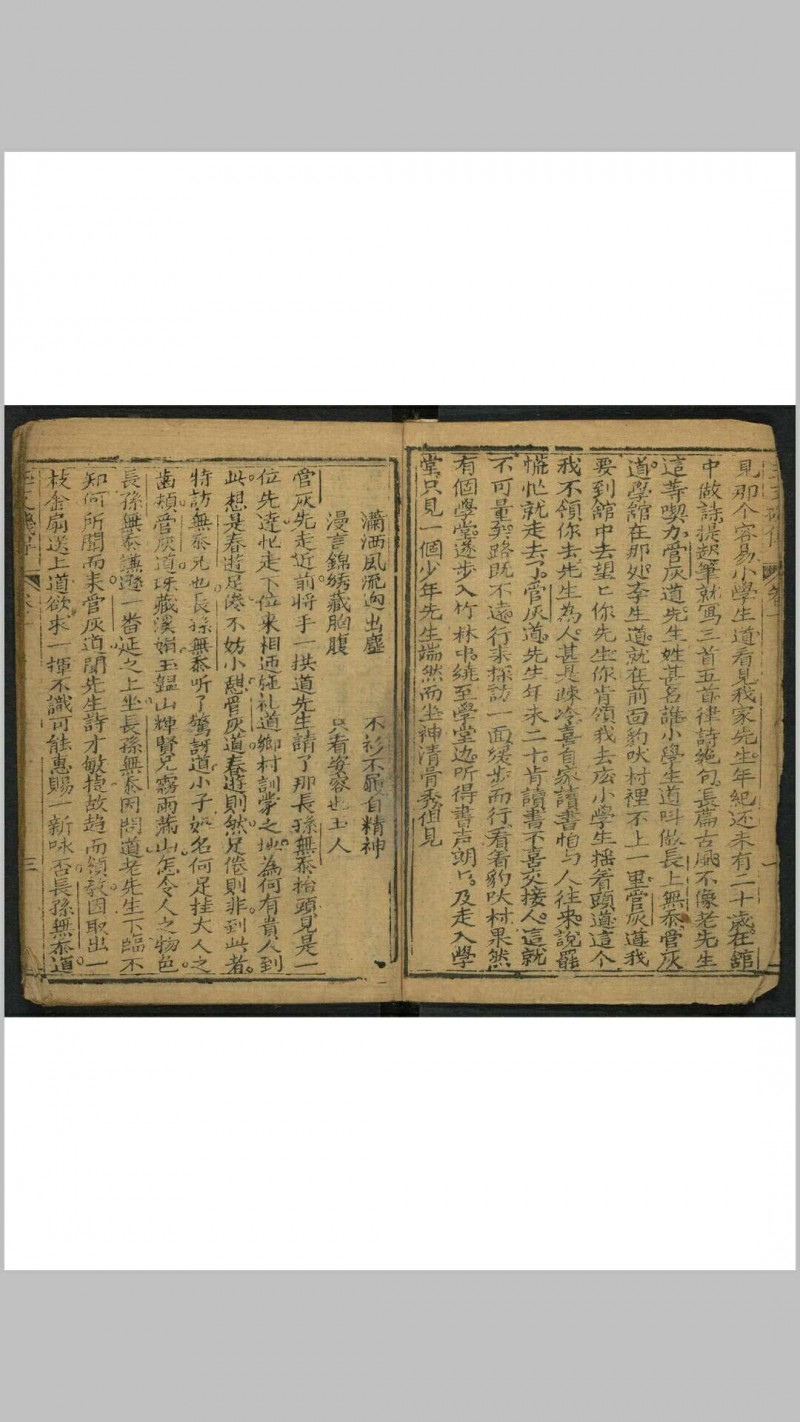 見那个容易小學生道看見我家先生年紀还未有二十歲在舘
中做詩提起筆就寫三首五首律詩絶句長篇古風不像老先生
這等喫力管灰道先生姓甚名誰小學生道叫做長上無忝管灰
道學舘在那处李生道就在前面豹吠村裡不上一里管灰道我
要到舘中去望匕你先生你肯領我去広小學生揺着頭道這个
我不領你去先生為人甚是疎冷喜自家讀書怕与人往來說罷
慌忙就走去了管灰道先生年未二十肯讀書不喜交接人這就
不可量到路既不遠行来採訪一面緩步而行看看豹吠村果然
有個學堂遂步入竹林中繞至學堂边听得書声朗匕及走入學
堂只見一個少年先生端然而坐神清骨秀但見
瀟洒風流迥出塵 不衫不履自精神
漫言錦綉藏胸腹 只看姿容也玉人
管灰先走近前将手一拱道先生請了那長孫無忝抬頭見是一
位先達忙走下位來相迎延礼道鄉村訓蒙之地為何有貴人到
此想是春遊足倦不妨小憩管灰道春遊則然足倦則非到此者
特訪無忝兄也長孫無忝听了驚訝道小子姓名何足挂大人之
齒頰管灰道珠藏溪媚玉韞山輝賢兄霧雨滿山怎令人之物色
長孫無忝謙遜一畨延之上坐長孫無忝因問道老先生下臨不
知何所聞而来管灰道聞先生詩才敏捷故趋而領教因取出一
枝金扇送上道欲求一揮不識可能惠賜一新咏否長孫無忝道
三